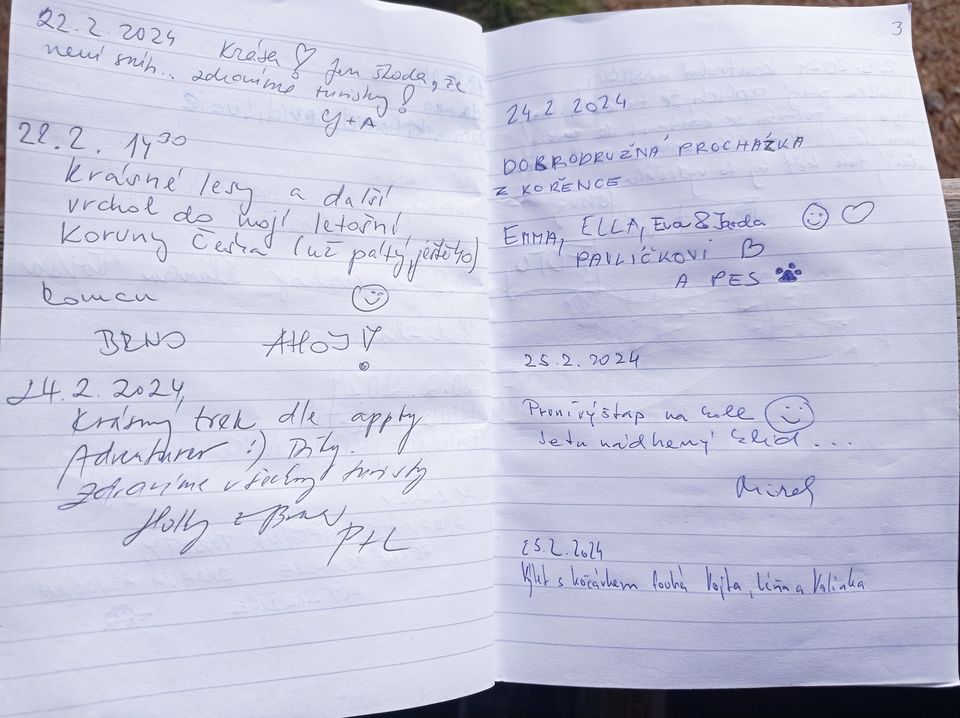 22.2.2024 Krása! Jen škoda, že
není sníh.. zdravíme turisty!
G+A
22.2. 14³⁰
Krásné lesy a další
vrchol do mojí letošní
Koruny Česka (už pátý, ještě 40)
Roman
BRNO AHOJ!
24.2.2024,
Krásný trek dle appky
Adventurer :) Díky.
Zdravíme všechny turisty
Holly z Brna
P+L
3
24.2.2024
DOBRODRUŽNÁ PROCHÁZKA
Z KOŘENCE
EMMA, ELLA, Eva & Jarda
PAVLÍČKOVI
A PES
25.2.2024
První výšlap na kole
Je tu nádherný klid...
25.2.2024
Výlet s kočárkem Vojta, a